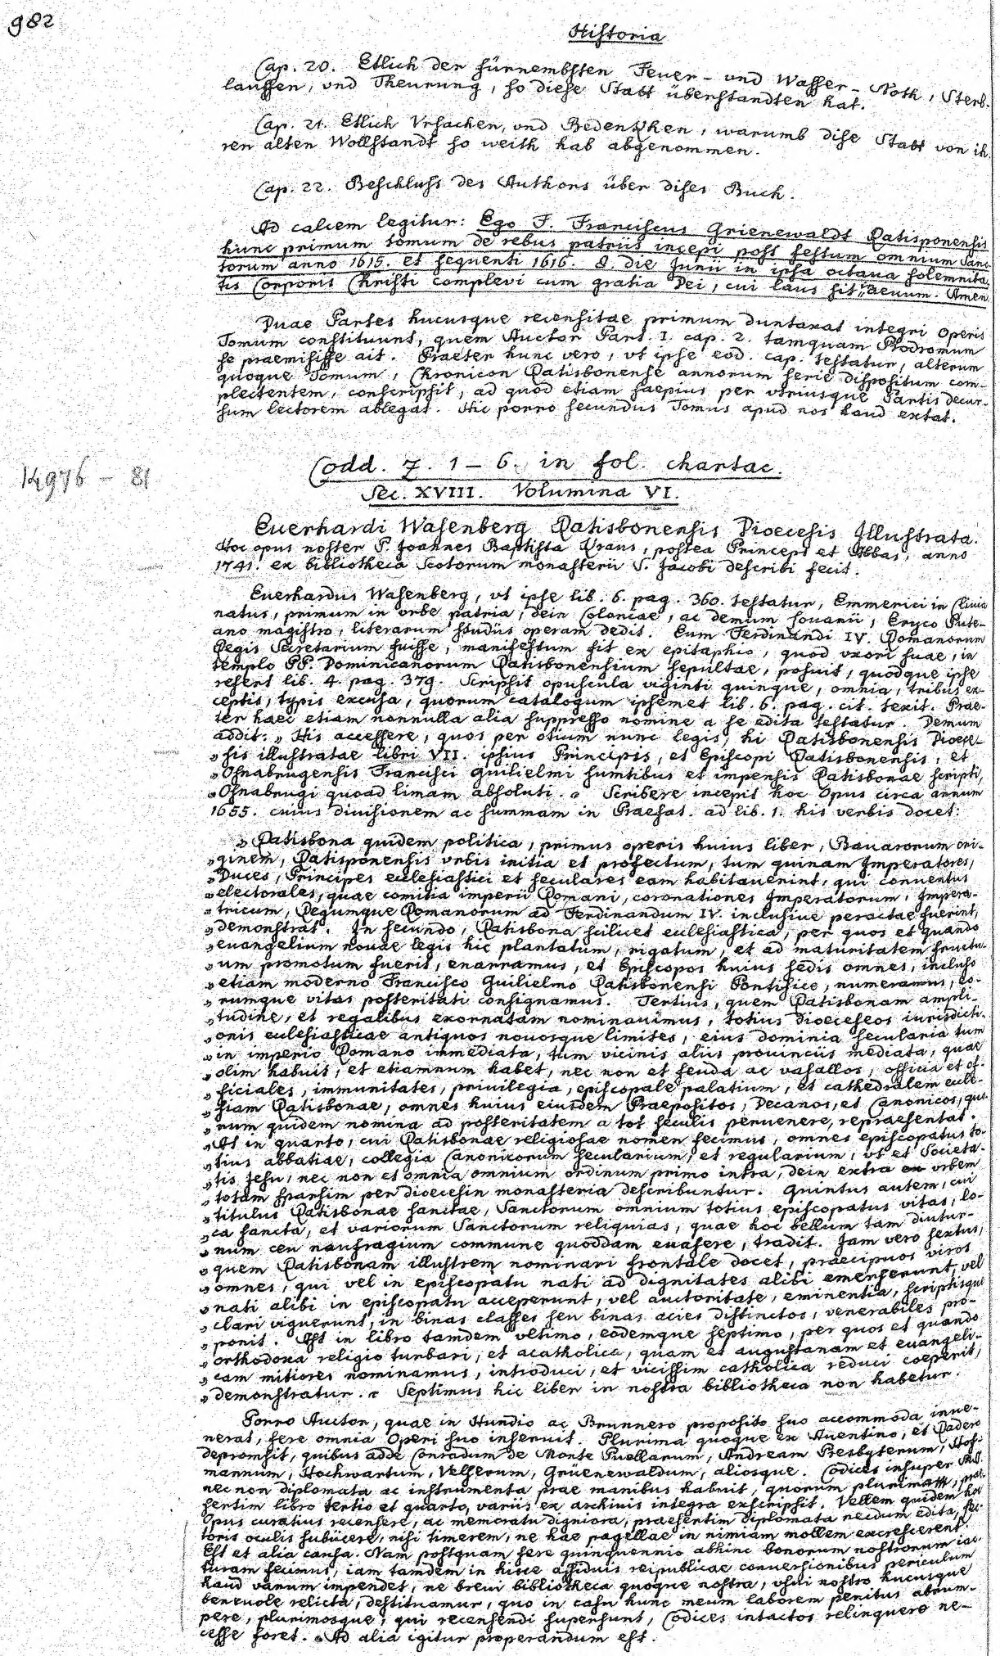 982
Historia
Cap. 20. Etlich der fürnembsten Feuer- und Wasser-Noth, Sterb-
lauffen, und Theurung, so diese Statt überstandten hat.
Cap. 21. Etlich Vrsachen, und Bedencken, warumb dise Statt von ih
ren alten Wollstandt so weith hab abgenommen.
Cap. 22. Beschluss des Authors über dises Buch.
Ad calcem legitur: Ego F. Franciscus Grienewaldt Ratisponensis
hunc primum tomum de rebus patriis incepi post festum omnium Sanc-
torum anno 1615. et sequenti 1616. 8. die Junii in ipsa octava solemnita-
tis Corporis Christi complevi cum gratia Dei, cui laus sit in aevum. Amen
Duae Partes hucusque recensitae primum duntaxat integri Operis
Tomum constituunt, quem Auctor Part. I. cap. 2. tamquam Prodromum
se praemisisse ait. Praeter hunc vero, vt ipse eod. cap. testatur, alterum
quoque Tomum, Chronicon Ratisbonense annorum serie dispositum com-
plectentem, conscripsit, ad quod etiam saepius per vtriusque Partis decur-
sum lectorem ablegat. Hic porro secundus Tomus apud nos haud extat.
14976 - 81
Codd. 7. 1-6. in fol. chartac.
Sec. XVIII. Volumina VI.
Euerhardi Wasenberg Ratisbonensis Dioecesis Illustrata.
Hoc opus noster P. Joannes Baptista Kraus, postea Princeps et Abbas, anno
1741. ex bibliotheca Scotorum monasterii S. Jacobi describi fecit.
Euerhardus Wasenberg, vt ipse lib. 6. pag. 360. testatur, Emmerici in Clivia
natus, primum in vrbe patria, dein Coloniae, ac demum Louanii, Eryco Pute-
ano magistro, literarum studiis operam dedit. Eum Ferdinandi IV. Romanorum
Regis Secretarium fuisse, manifestum fit ex epitaphio, quod vxori suae, in
templo PP. Dominicanorum Ratisbonensium sepultae, posuit, quodque ipse
refert lib. 4. pag. 379. Scripsit opuscula viginti quinque, omnia, tribus ex-
ceptis, typis excusa, quorum catalogum ipsemet lib. 6. pag. cit. texit. Prae-
ter haec etiam nonnulla alia suppresso nomine a se edita testatur. Demum
addit: „His accessere, quos per otium nunc legis, hi Ratisbonensis Dioece-
„sis illustratae libri VII. ipsius Principis, et Episcopi Ratisbonensis, et
„Osnabrugensis Francisci Guilielmi sumtibus et impensis Ratisbonae scripti,
„Osnabrugi quoad limam absoluti." Scribere incepit hoc Opus circa annum
1655. cuius diuisionem ac summam in Praefat. ad lib. 1. his verbis docet:
„Ratisbona quidem politica, primus operis huius liber, Bauarorum ori-
„ginem, Ratisponensis vrbis initia et profectum, tum quinam Imperatores,
„Duces, Principes ecclesiastici et seculares eam habitauerint, qui conuentus
„electorales, quae comitia imperii Romani, coronationes Imperatorum, Impera-
„tricum, Regumque Romanorum ad Ferdinandum IV. inclusiue peractae fuerint,
„demonstrat. In secundo, Ratisbona scilicet ecclesiastica, per quos et quando
„euangelium nouae legis hic plantatum, rigatum, et ad maturitatem fructu-
„um promotum fuerit, enarramus, et Episcopos huius sedis omnes, incluso
„etiam moderno Francisco Guilielmo Ratisbonensi Pontifice, numeramus, eo-
„rumque vitas posteritati consignamus. Tertius, quem Ratisbonam ampli-
„tudine, et regalibus exornatam nominauimus, totius dioeceseos iurisdicti-
„onis ecclesiasticae antiquos nouosque limites, eius dominia secularia tum
„in imperio Romano immediata, tum vicinis aliis prouinciis mediata, quae
„olim habuit, et etiamnum habet, nec non et feuda ac vasallos, officia et of-
„ficiales, immunitates, priuilegia, episcopale palatium, et cathedralem eccle-
„siam Ratisbonae, omnes huius eiusdem Praepositos, Decanos, et Canonicos, quo-
„rum quidem nomina ad posteritatem a tot seculis peruenere, repraesentat.
„At in quarto, cui Ratisbonae religiosae nomen fecimus, omnes episcopatus to-
„tius abbatiae, collegia Canonicorum secularium, et regularium, vt et Societa-
„tis Jesu, nec non et omnia omnium ordinum primo intra, dein extra vrbem
„totam sparsim per dioecesin monasteria describuntur. Quintus autem, cui
„titulus Ratisbonae sanctae, Sanctorum omnium totius episcopatus vitas, lo-
„ca sancta, et variorum Sanctorum reliquias, quae hoc bellum tam diutur-
„num ceu naufragium commune quoddam euasere, tradit. Jam vero sextus,
„quem Ratisbonam illustrem nominari frontale docet, praecipuos viros
„omnes, qui vel in episcopatu nati ad dignitates alibi emerserunt, vel
„nati alibi in episcopatu acceperunt, vel auctoritate, eminentia, scriptisque
„clari viguerunt, in binas classes seu binas acies distinctos, venerabiles pro-
„ponit. Ast in libro tamdem vltimo, eodemque septimo, per quos et quando
„orthodoxa religio turbari, et acatholica, quam et augustanam et euangeli-
„cam mitiores nominamus, introduci, et vicissim catholica reduci coeperit,
„demonstratur." Septimus hic liber in nostra bibliotheca non habetur.
Porro Auctor, quae in Hundio ac Brunnero proposito suo accommoda inue-
nerat, fere omnia Operi suo inseruit. Plurima quoque ex Auentino, et Radero
depromsit, quibus adde Conradum de Monte Puellarum, Andream Presbyterum, Hof-
mannum, Hochwartum, Velserum, Grüenewaldum, aliosque. Codices insuper MSS.
nec non diplomata ac instrumenta prae manibus habuit, quorum plurima, prae-
sertim libro tertio et quarto, variis ex archiuis integra exscripsit. Vellem quidem hoc
Opus curatius recensere, ac memoratu digniora, praesertim diplomata necdum edita, lec-
toris oculis subiicere, nisi timerem, ne hae pagellae in nimiam molem excrescerent.
Est et alia causa. Nam postquam fere quinquennio abhinc bonorum nostrorum iac-
turam fecimus, iam tamdem in hisce assiduis reipublicae conuersionibus periculum
haud vanum impendet, ne breui bibliotheca quoque nostra, vsui nostro hucusque
beneuole relicta, destituamur, quo in casu hunc meum laborem penitus abrum-
pere, plurimosque, qui recensendi supersunt, Codices intactos relinquere ne-
cesse foret. Ad alia igitur properandum est.